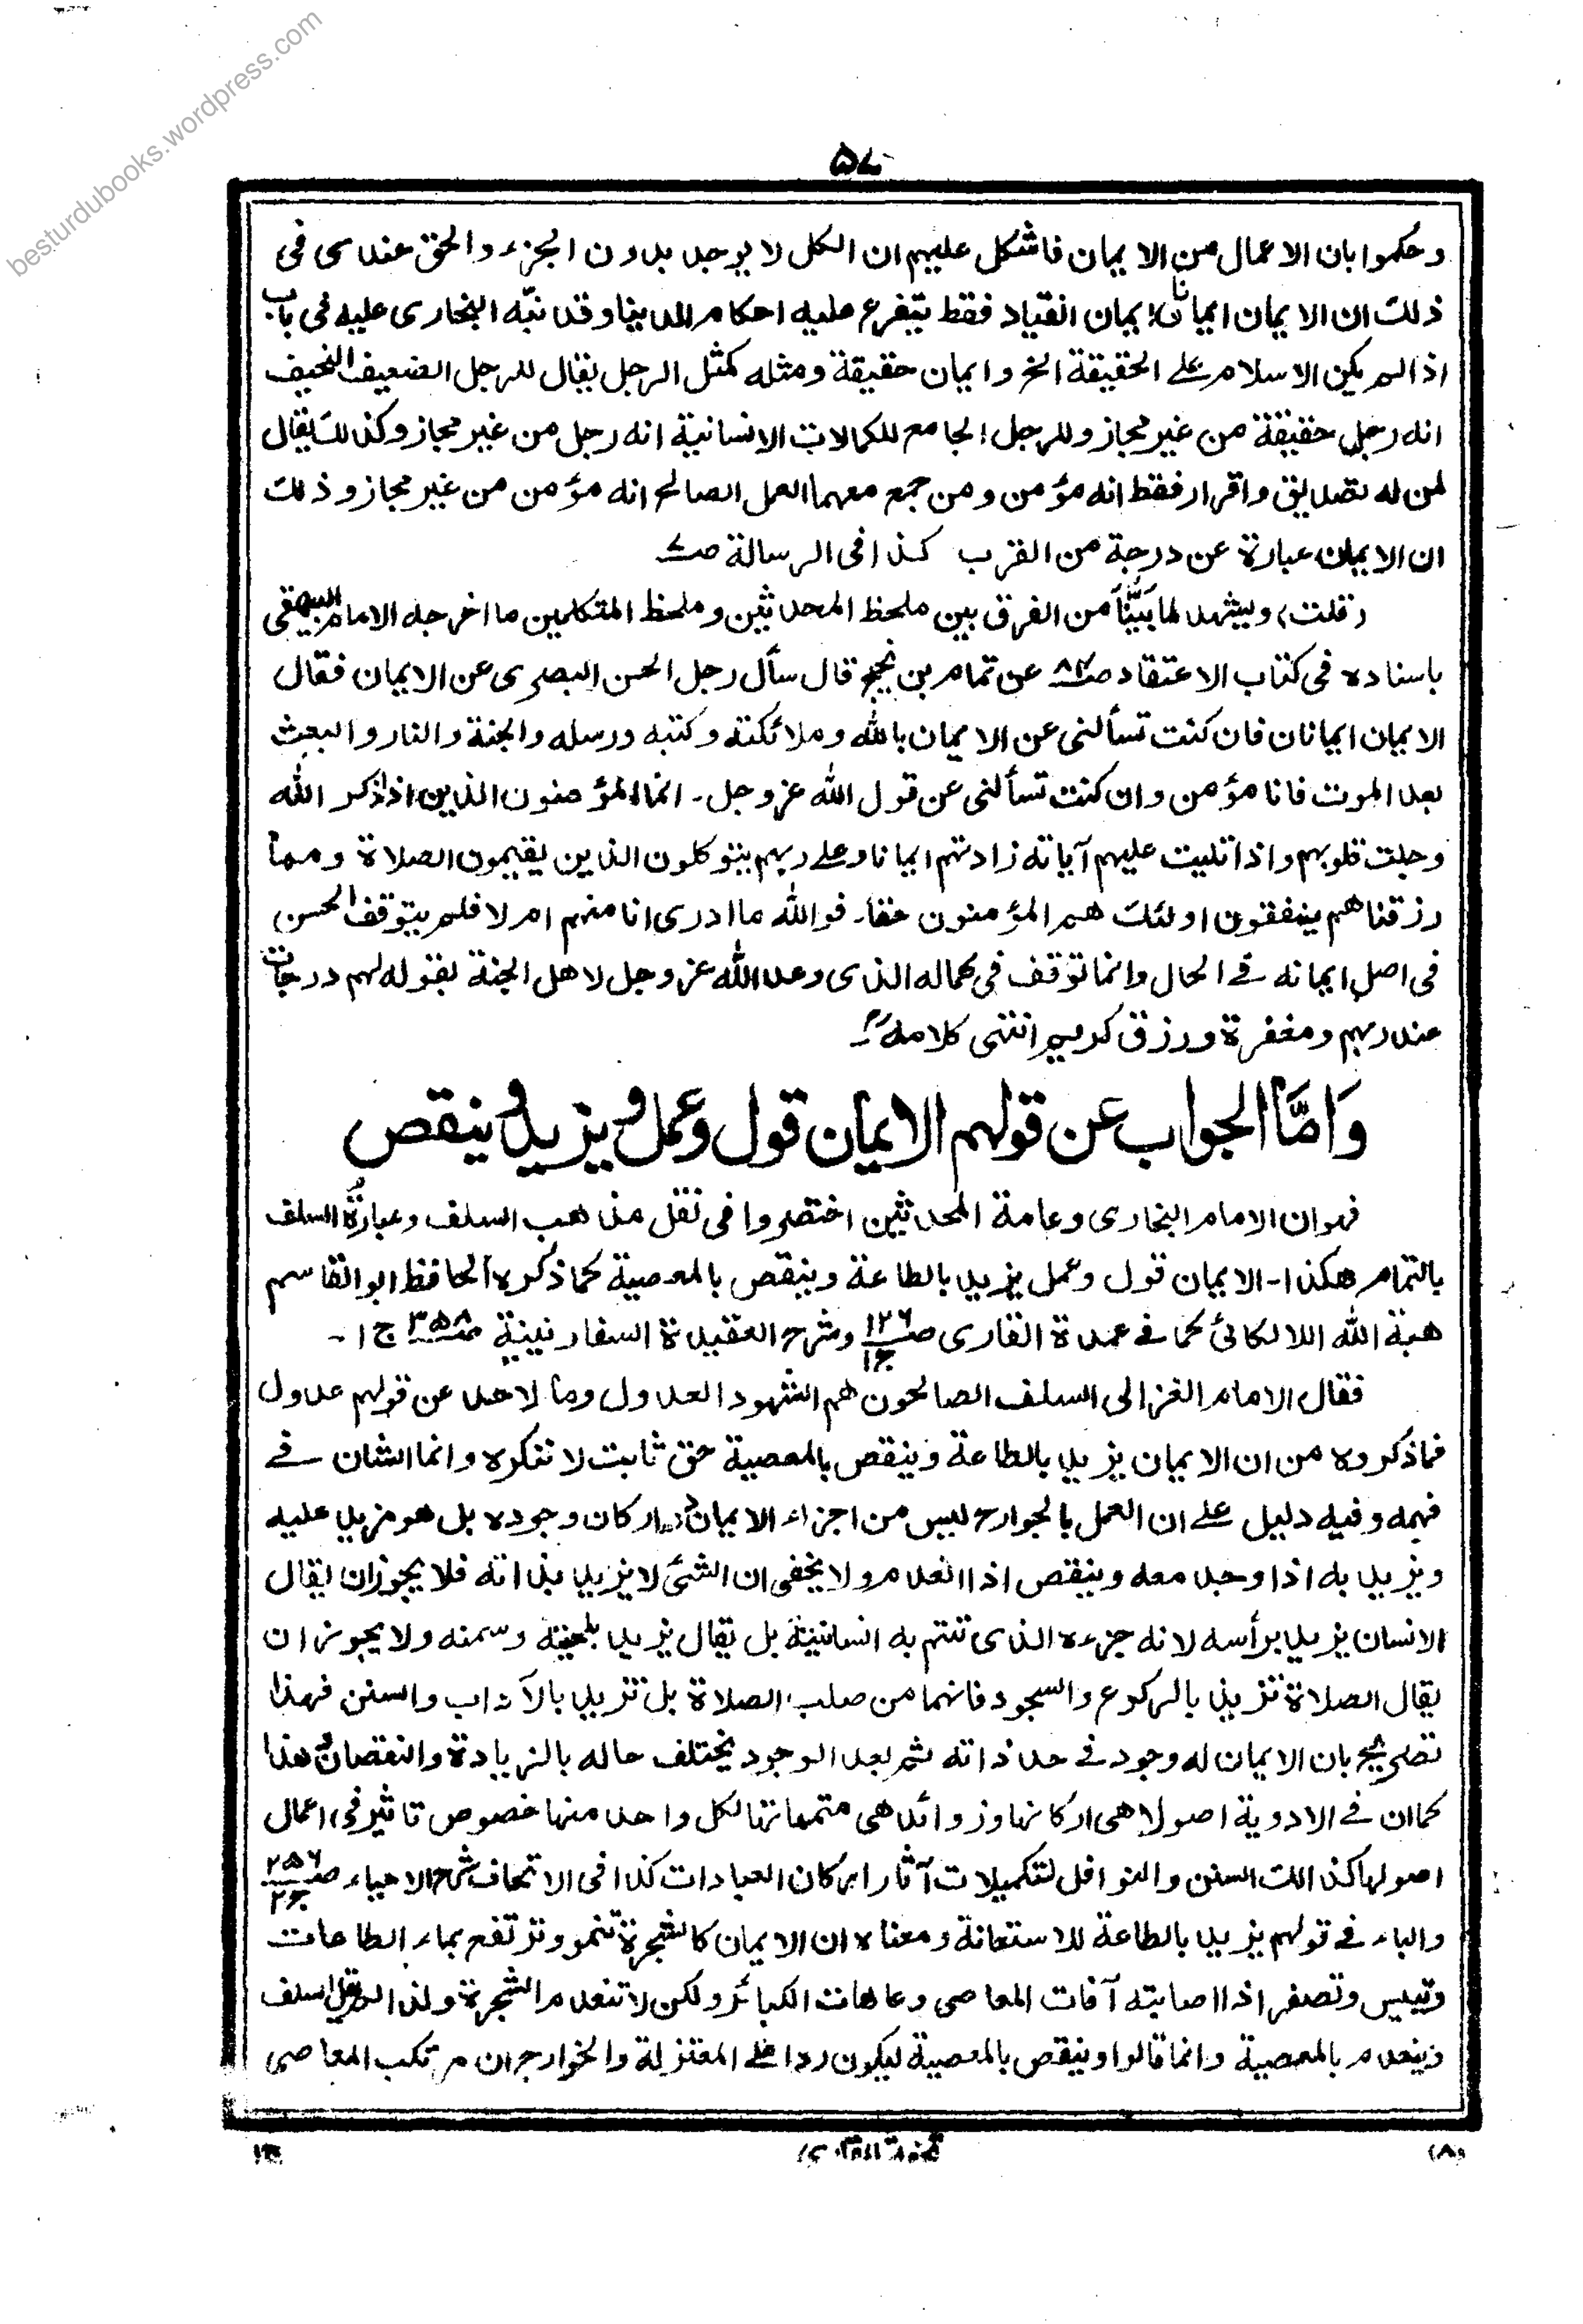 besturdubooks.wordpress.com
۵۷
وحکموا بان الاعمال من الایمان فاشکل علیهم ان الکل لا یوجد بدون الجزء والحق عندی فی
ذلك ان الایمان ایمانان ایمان انقیاد فقط یتفرع علیه احکام الدنیا وقد نبّه البخاری علیه فی باب
اذا لم یکن الاسلام علی الحقیقة الخ وایمان حقیقة ومثله کمثل الرجل یقال للرجل الضعیف النحیف
انه رجل حقیقة من غیر مجاز وللرجل الجامع للکمالات الانسانیة انه رجل من غیر مجاز وکذلك یقال
لمن له تصدیق واقرار فقط انه مؤمن ومن جمع معهما العمل الصالح انه مؤمن من غیر مجاز وذلك
ان الایمان عبارة عن درجة من القرب کذا فی الرسالة صـ۷
(قلت) ویشهد لما بَیَّنَّا من الفرق بین ملحظ المحدثین وملحظ المتکلمین ما اخرجه الامام البیهقی
باسناده فی کتاب الاعتقاد صـ۸۴ عن تمام بن نجیح قال سأل رجل الحسن البصری عن الایمان فقال
الایمان ایمانان فان کنت تسألنی عن الایمان بالله وملائکته وکتبه ورسله والجنة والنار والبعث
بعد الموت فانا مؤمن وان کنت تسألنی عن قول الله عزوجل۔ انما المؤمنون الذین اذا ذکر الله
وجلت قلوبهم واذا تلیت علیهم آیاته زادتهم ایمانا وعلی ربهم یتوکلون الذین یقیمون الصلاة ومما
رزقناهم ینفقون اولئك هم المؤمنون حقا۔ فوالله ما ادری انا منهم ام لا فلم یتوقف الحسن
فی اصل ایمانه فی الحال وانما توقف فی کماله الذی وعد الله عزوجل لاهل الجنة بقوله لهم درجات
عند ربهم ومغفرة ورزق کریم انتهی کلامهؒ۔
وَامَّا الجواب عن قولهم الایمان قول وعمل ویزید وینقص
فهو ان الامام البخاری وعامة المحدثین اختصروا فی نقل مذهب السلف وعبارةُ السلف
بالتمام هکذا۔ الایمان قول وعمل یزید بالطاعة وینقص بالمعصیة کما ذکره الحافظ ابو القاسم
هبة الله اللالکائی کما فی عمدة القاری صـ۱۲۶ ج۱ وشرح العقیدة السفارینیة صـ۳۵۸ ج۱۔
فقال الامام الغزالی السلف الصالحون هم الشهود العدول وما لاحد عن قولهم عدول
فما ذکروه من ان الایمان یزید بالطاعة وینقص بالمعصیة حق ثابت لا ننکره وانما الشان فی
فهمه وفیه دلیل علی ان العمل بالجوارح لیس من اجزاء الایمان وارکان وجوده بل هو مزید علیه
ویزید به اذا وجد معه وینقص اذا انعدم ولا یخفی ان الشئ لا یزید بذاته فلا یجوز ان یقال
الانسان یزید برأسه لانه جزءه الذی تتم به انسانیته بل یقال یزید بلحیته وسمنه ولا یجوز ان
یقال الصلاة تزید بالرکوع والسجود فانهما من صلب الصلاة بل تزید بالآداب والسنن فهذا
تصریح بان الایمان له وجود فی حد ذاته ثم بعد الوجود یختلف حاله بالزیادة والنقصان وهذا
کما ان فی الادویة اصولا هی ارکانها وزوائد هی متمماتها لکل واحد منها خصوص تاثیر فی اعمال
اصولها کذلك السنن والنوافل لتکمیلات آثار ارکان العبادات کذا فی الاتحاف شرح الاحیاء صـ۲۵۶ ج۲
والباء فی قولهم یزید بالطاعة للاستعانة ومعناه ان الایمان کالشجرة تنمو وترتفع بماء الطاعات
وتیبس وتصفر اذا اصابته آفات المعاصی وعاهات الکبائر ولکن لا تنعدم الشجرة ولذا لم یقل السلف
وینعدم بالمعصیة وانما قالوا وینقص بالمعصیة لیکون ردا علی المعتزلة والخوارج ان مرتکب المعاصی
(۸)
تحفة القاری